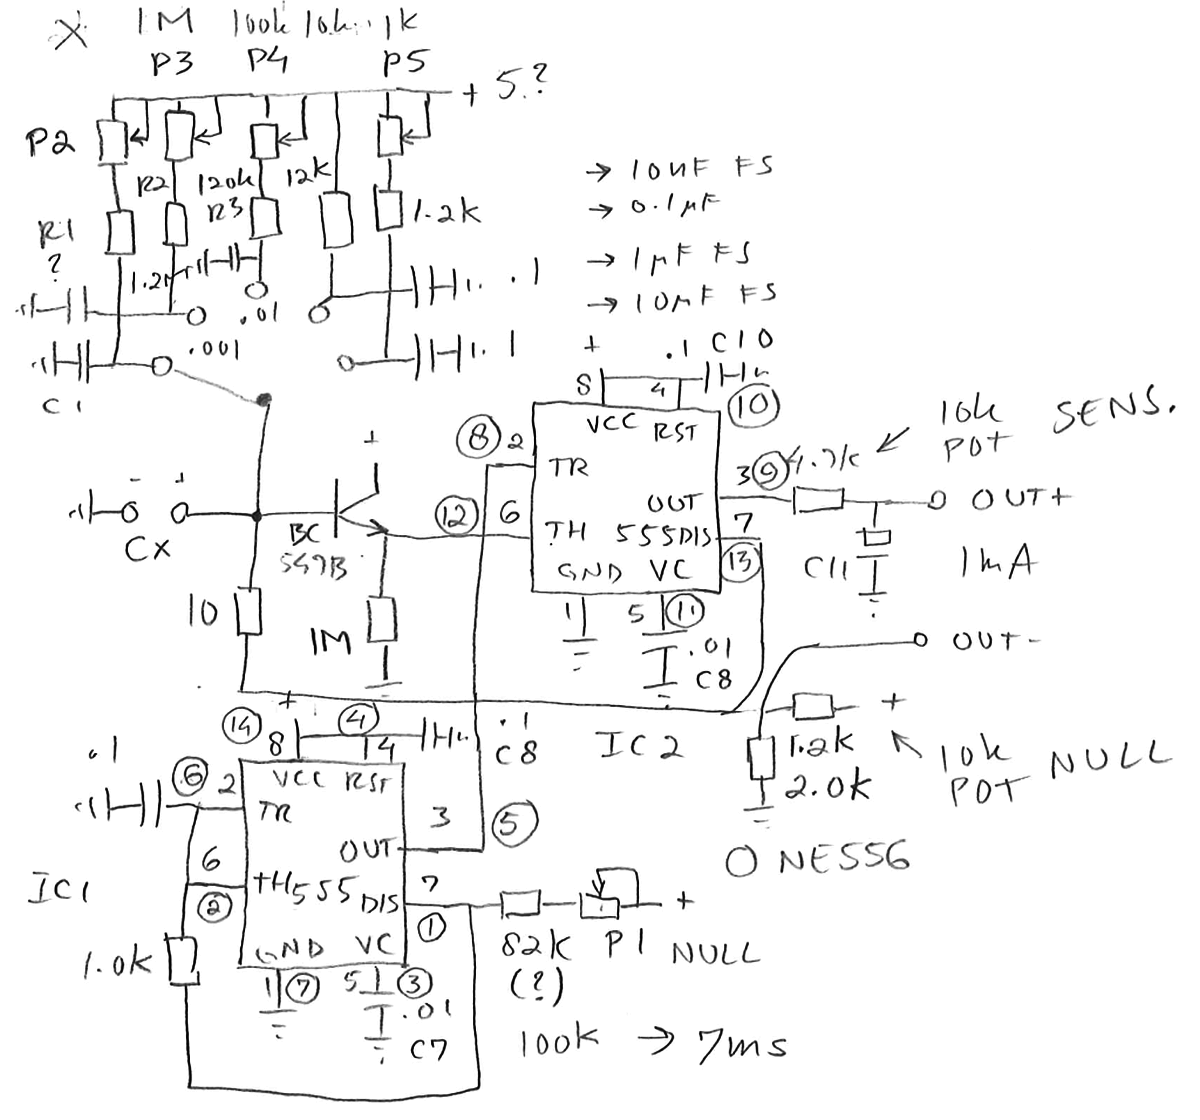 X 1M 100k 10k 1k
P3 P4 P5
+ 5.?
P2
R2 120k 12k
R1 R3 1.2k
?
1.2M
.01 .1
.001
.1
C1
→ 10nF FS
→ 0.1µF
→ 1µF FS
→ 10µF FS
+ .1 C10
8 4 (10)
VCC RST
(8) 2 TR
3 (9) 4.7k
10k
POT SENS.
OUT
OUT+
(12) 6 TH 555 DIS 7
(13)
GND VC
1 5 (11)
.01
C8
C11 1mA
OUT-
- +
CX
+
BC
549B
10
1M
IC2
+
1.2k
2.0k
10k
POT NULL
O NE556
+
(14) 8 (4) 4
.1
C8
VCC RST
.1
(6) 2 TR
3 (5)
OUT
IC1
6 TH 555 DIS 7
(2) (1)
GND VC
1 (7) 5 (3)
.01
C7
1.0k
82k P1 NULL
+
(?)
100k → 7ms